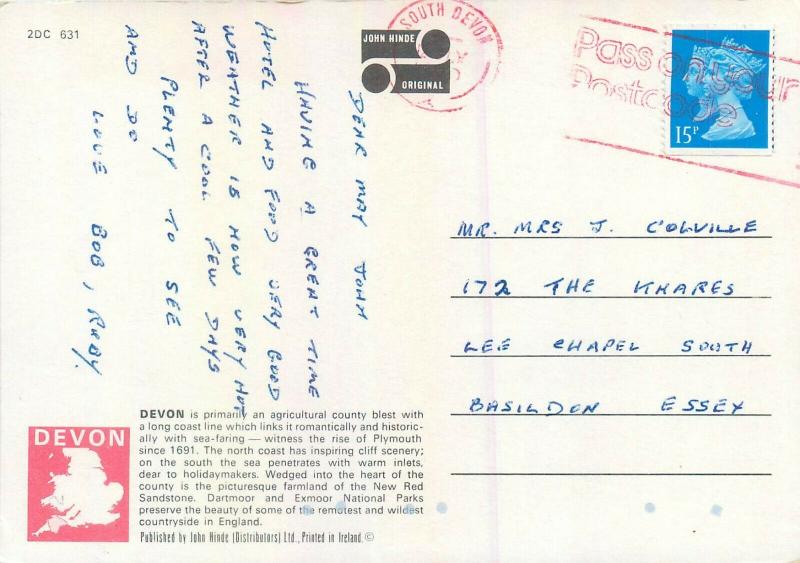 2DC 631
JOHN HINDE
ORIGINAL
SOUTH DEVON
Pass on your
Postcode
15P
DEAR MAY JOHN
HAVING A GREAT TIME
HOTEL AND FOOD VERY GOOD
WEATHER IS NOW VERY HOT
AFTER A COOL FEW DAYS
PLENTY TO SEE
AND DO
LOVE BOB, RUBY.
MR. MRS J. COLVILLE
172 THE KNARES
LEE CHAPEL SOUTH
BASILDON ESSEX
DEVON
DEVON is primarily an agricultural county blest with
a long coast line which links it romantically and historic-
ally with sea-faring — witness the rise of Plymouth
since 1691. The north coast has inspiring cliff scenery;
on the south the sea penetrates with warm inlets,
dear to holidaymakers. Wedged into the heart of the
county is the picturesque farmland of the New Red
Sandstone. Dartmoor and Exmoor National Parks
preserve the beauty of some of the remotest and wildest
countryside in England.
Published by John Hinde (Distributors) Ltd., Printed in Ireland. ©